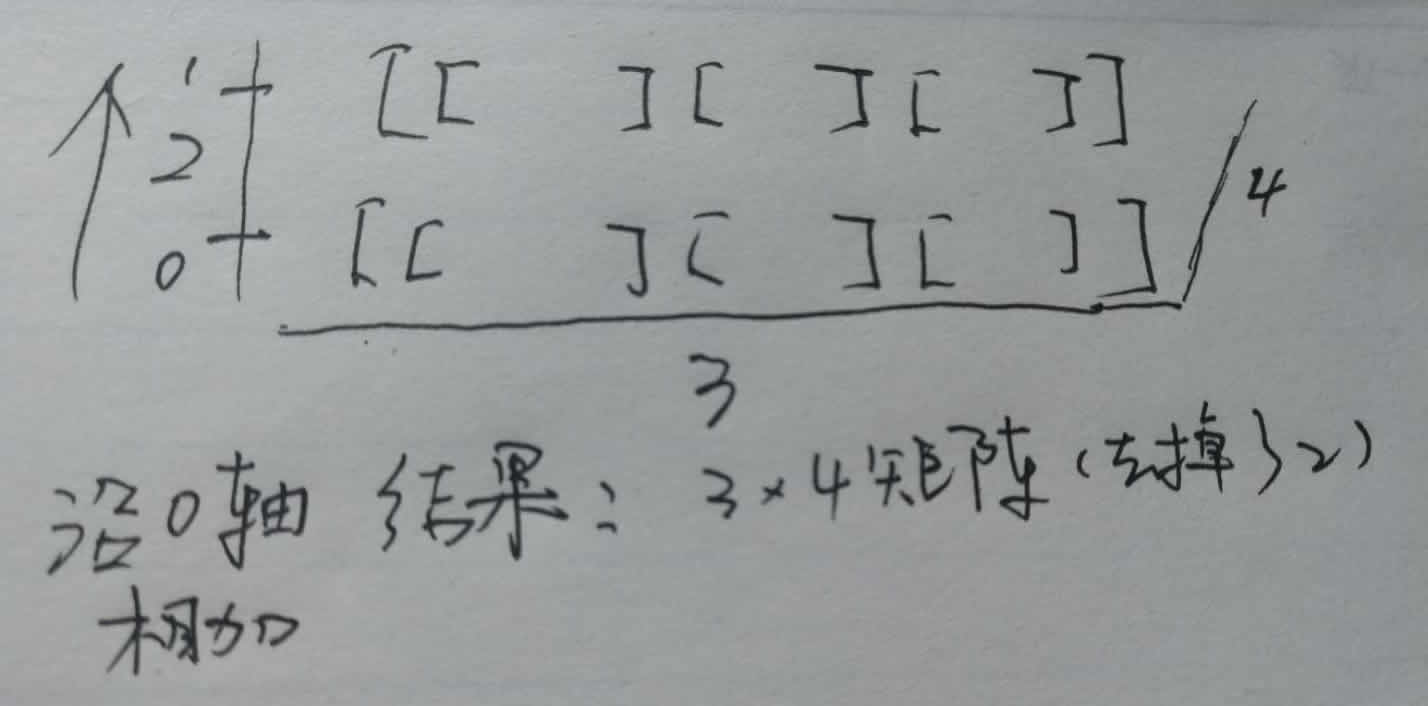 1 [[ ][ ][ ]]
2
0 [[ ][ ][ ]] 4
3
沿0轴 结果: 3×4矩阵(去掉了2)
相加